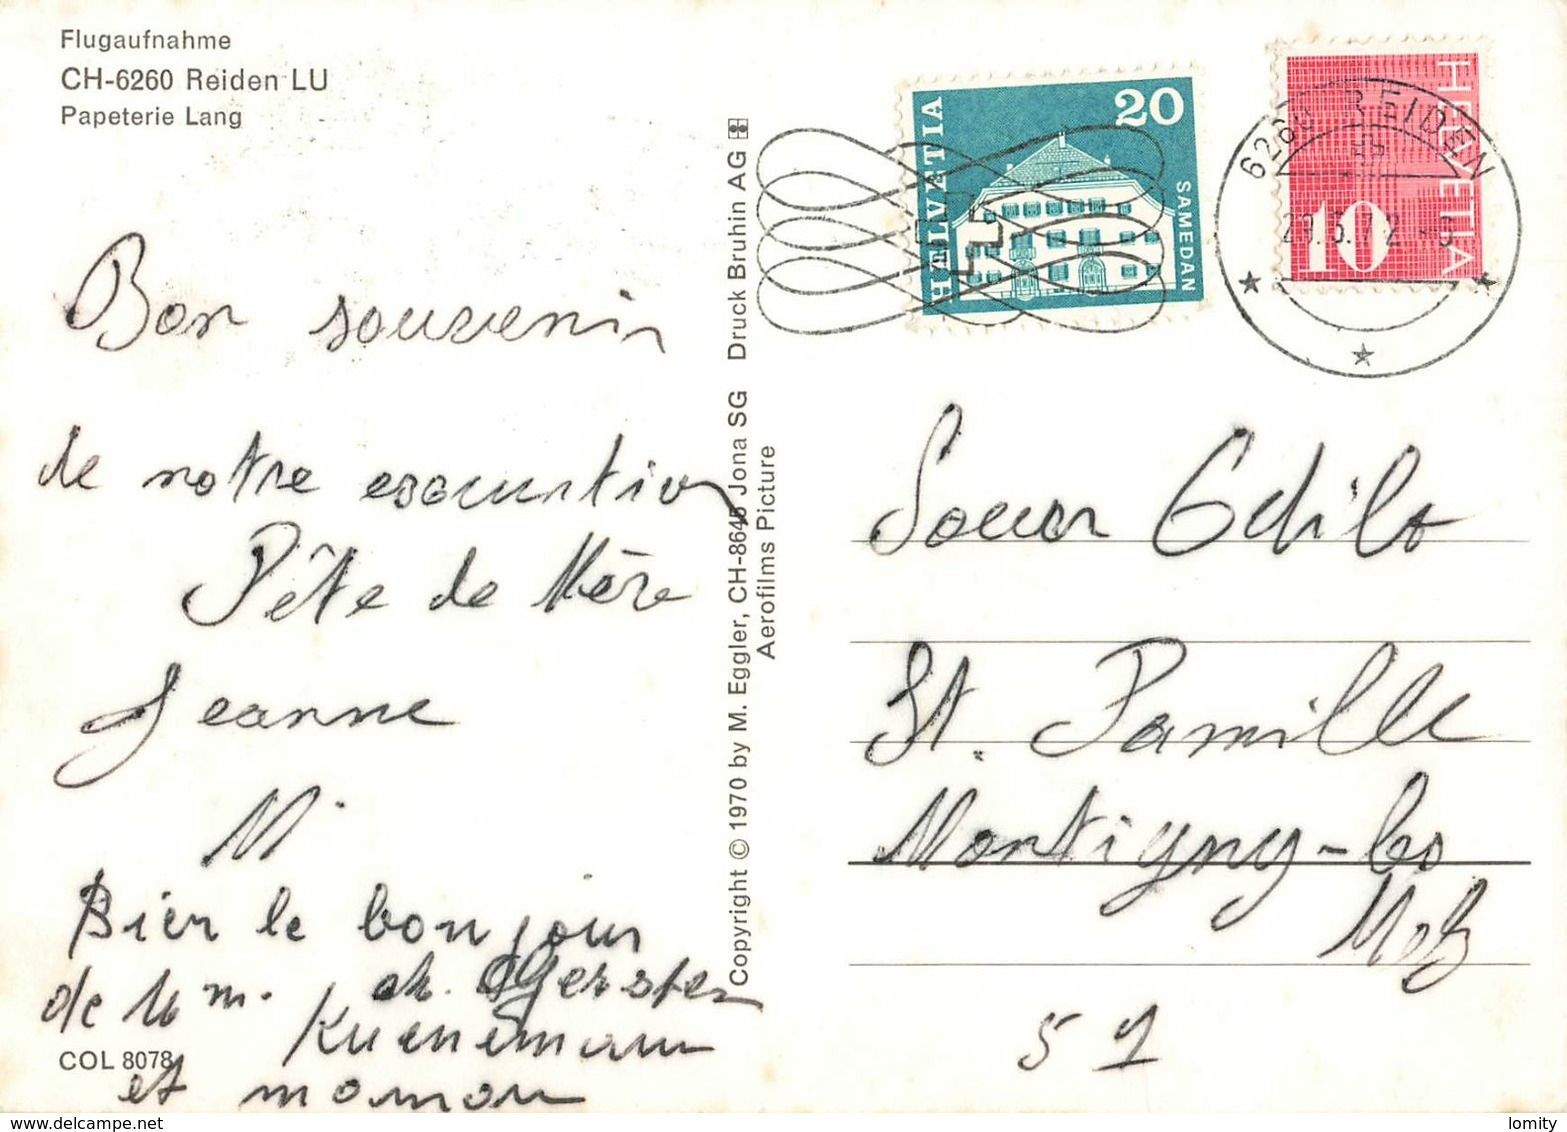 Flugaufnahme
CH-6260 Reiden LU
Papeterie Lang
Bon souvenir
de notre
Fête de Mère
Jeanne
M.
Bien le bonjour
de Mm.
Kuenemann
et maman
COL 8078
Copyright © 1970 by M. Eggler, CH-8645 Jona SG Druck Bruhin AG
Aerofilms Picture
HELVETIA
20
SAMEDAN
HELVETIA
10
6260 REIDEN
Soeur Odile
St. Famille
Montigny-les
Metz
57
delcampe.net
lomity